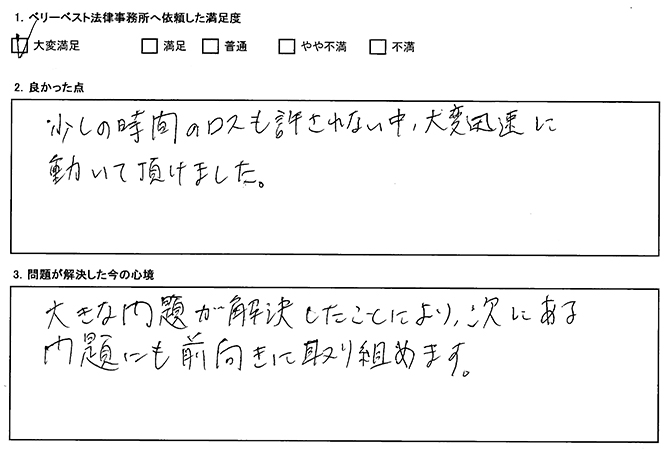 1. ベリーベスト法律事務所へ依頼した満足度
☑ 大変満足 □ 満足 □ 普通 □ やや不満 □ 不満
2. 良かった点
少しの時間のロスも許されない中、大変迅速に
動いて頂けました。
3. 問題が解決した今の心境
大きな問題が解決したことにより、次にある
問題にも前向きに取り組めます。